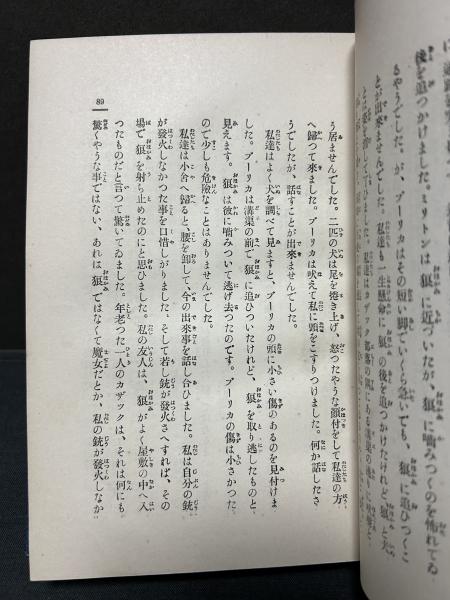 後を追つかけました。ミリトンは狼に近づいたが、狼に噛
さやうでした。が、ブーリカはその短い脚でいくら急いても、狼に追ひつくこ
とが出來ませんでした。私達も一生懸命に狼の後を追つかけたけれど、狼と犬
う居ませんでした。二匹の犬は尾を捲き上げ、怒つたやうな顏付をして私達の方
へ歸つて來ました。ブーリカは吠えて私に頭をこすりつけました。何か話したさ
うでしたが、話すことが出來ませんでした。
私達はよく犬を調べて見ますと、ブーリカの頭に小さい傷のあるのを見付けま
した。ブーリカは溝渠の前で狼に追ひついたけれど、狼を取り逃したものと
見えます。狼は彼に噛みついて逃げ去つたのです。ブーリカの傷は小さかつた
ので少しも危險なことはありませんでした。
私達は小舍へ歸ると、腰を卸して、今の出來事を話し合ひました。私は自分の銃
が發火しなかつた事を口惜しがりました。そして若し銃が發火さへすれば、その
場で狼を射ち止めたのにと思ひました。私の友人は、狼がよく屋敷の中へ入
つたものだと言つて驚いてゐました。年老つた一人のカザックは、それは何にも
驚くやうな事ではない、あれは狼ではなくて魔女だとか、私の銃が發火しなか
89